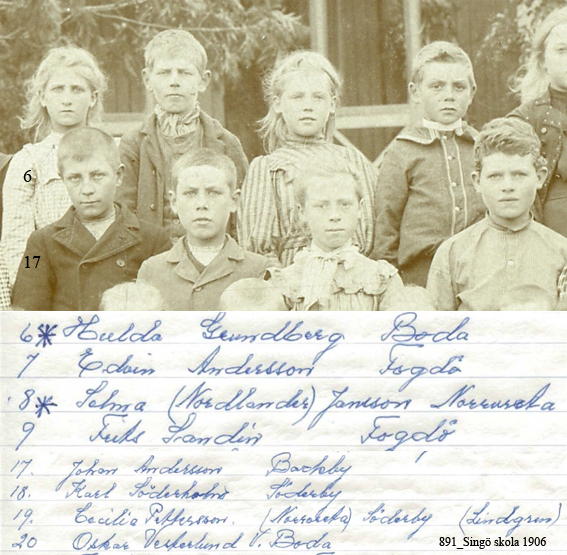 6
17
6* Hulda Grundberg Boda
7 Edvin Andersson Fogdö
8* Selma (Nordlander) Jansson Norrvreta
9 Frits Sandin Fogdö
17. Johan Andersson Backby
18. Karl Söderholm Söderby
19. Cecilia Pettersson. (Norrvreta) Söderby (Lindgren)
20 Oskar Vesterlund V. Boda
891_Singö skola 1906